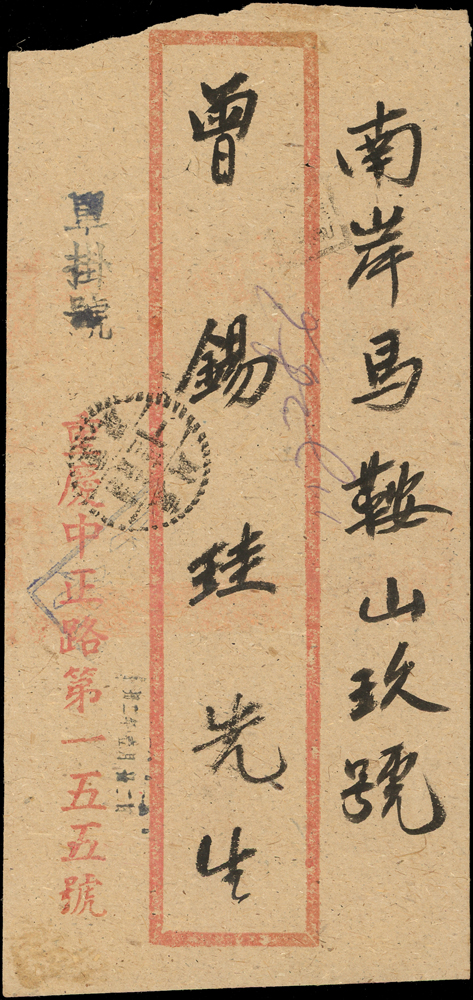 南岸馬鞍山玖號
曾錫珪先生
單掛號
重慶中正路第一五五號